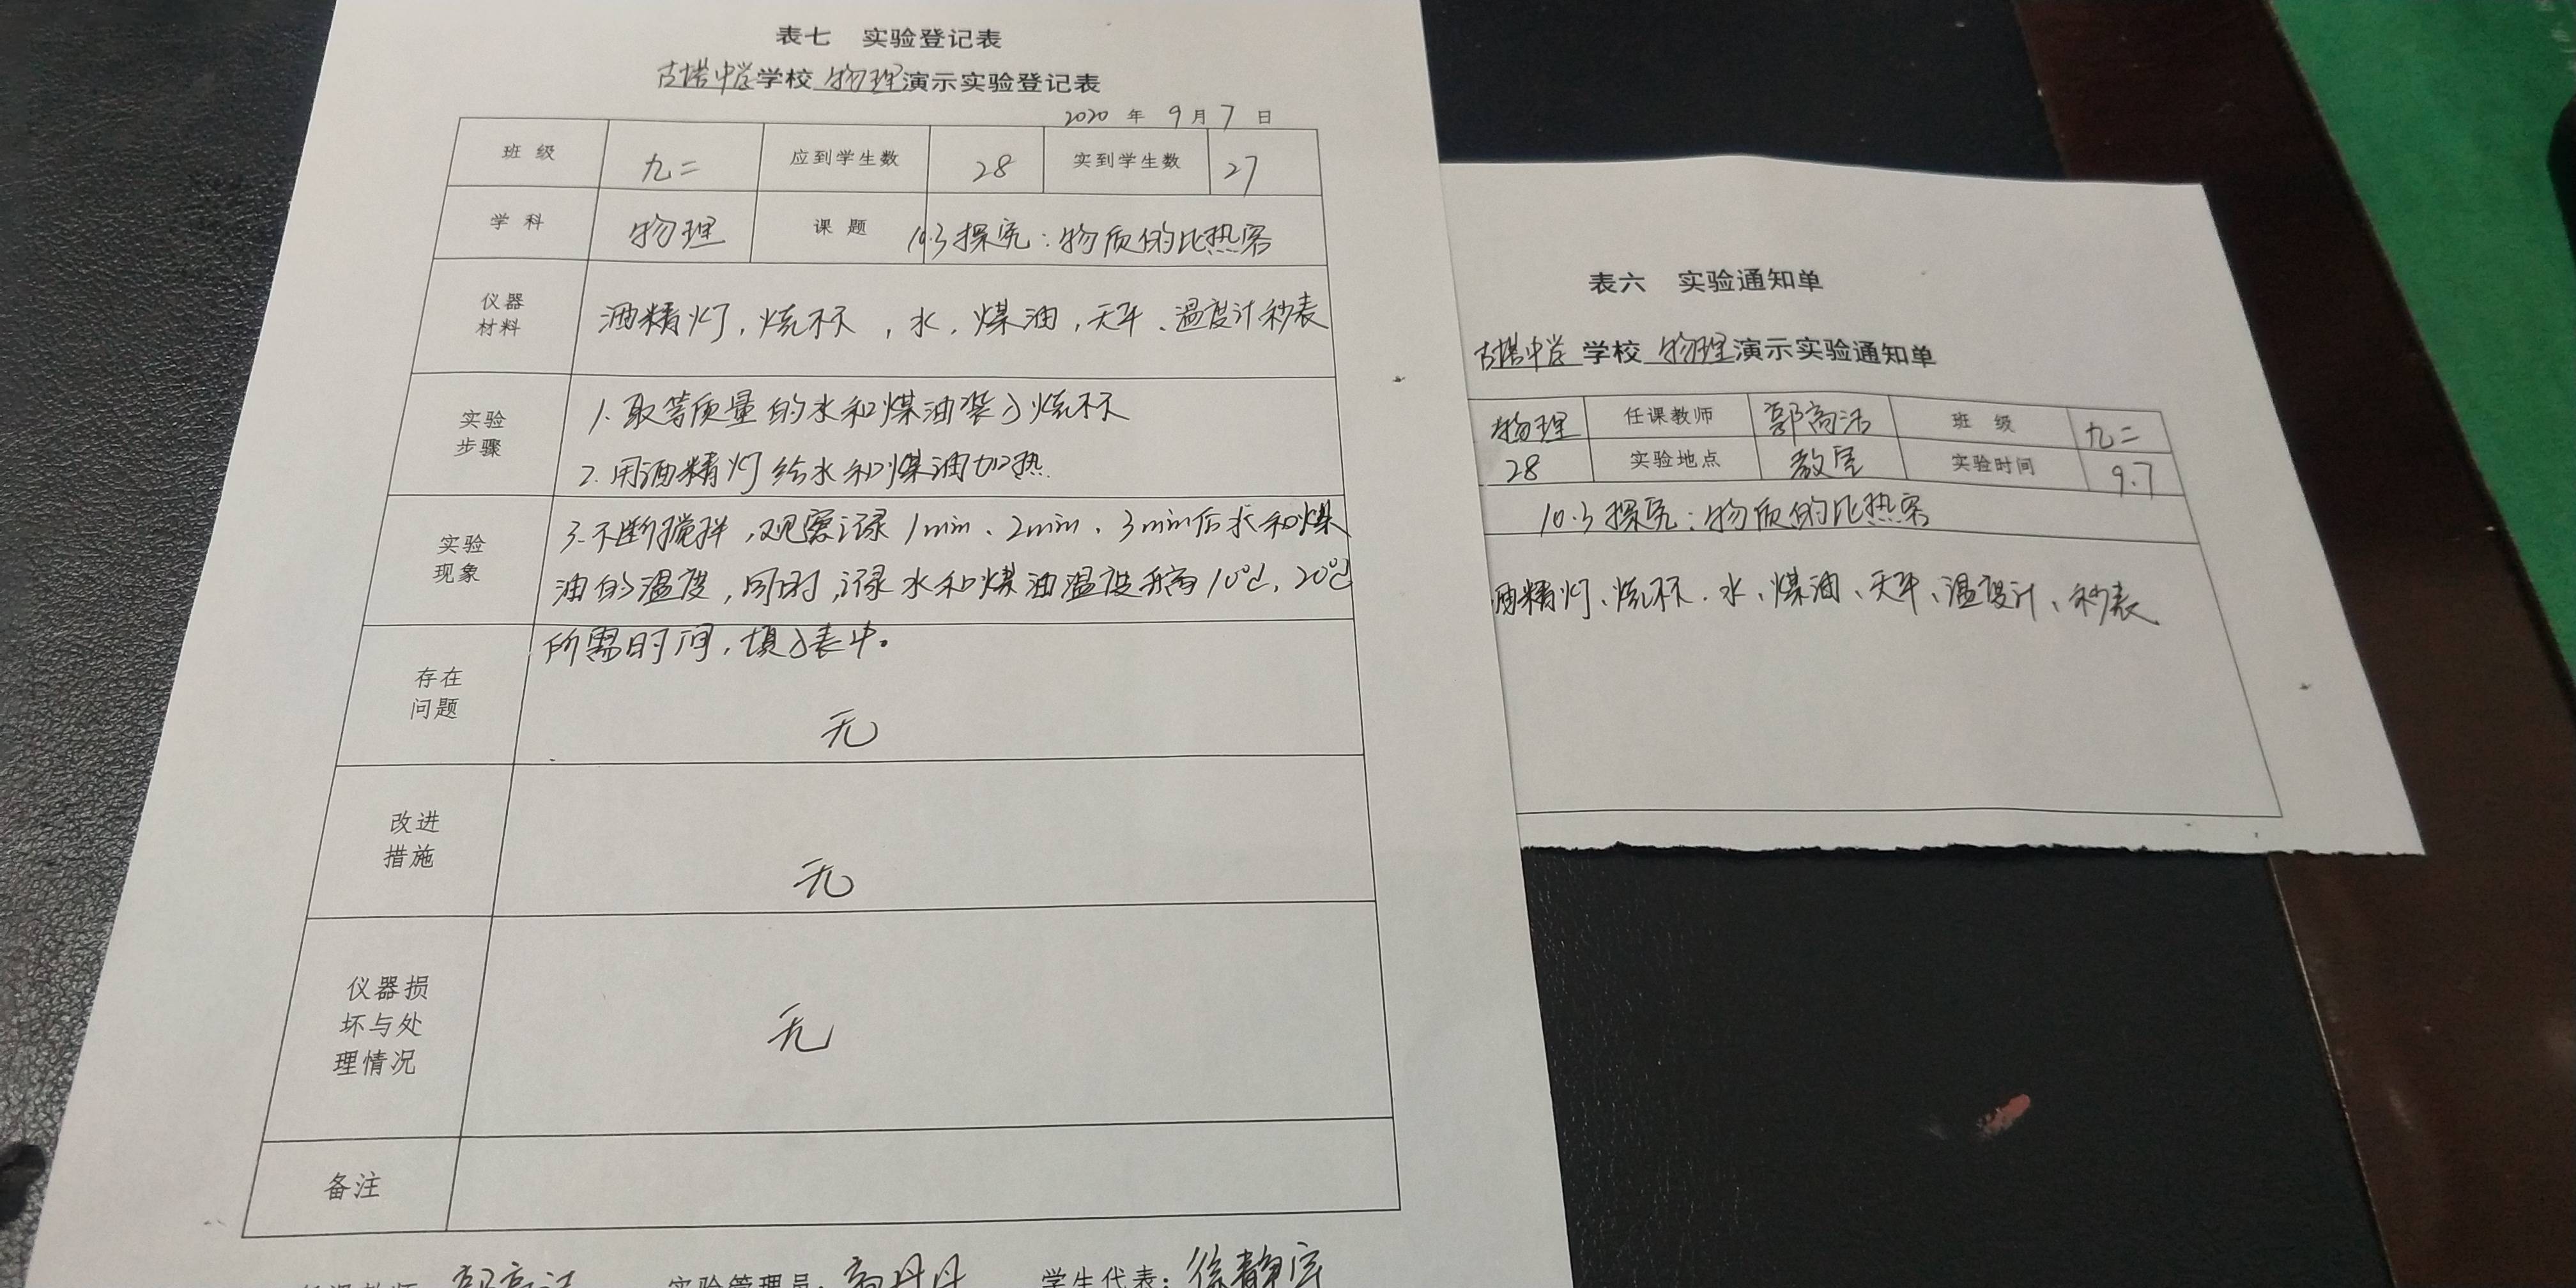 表七 实验登记表
古塔中学学校 物理演示实验登记表
2020 年 9 月 7 日
班 级 九二 应到学生数 28 实到学生数 27
学 科 物理 课 题 10.3探究：物质的比热容
仪器
材料
酒精灯，烧杯，水，煤油，天平、温度计秒表
实验
步骤
1. 取等质量的水和煤油装入烧杯
2. 用酒精灯给水和煤油加热
实验
现象
3. 不断搅拌，观察记录1min、2min、3min后水和煤
油的温度，同时，记录水和煤油温度升高10℃，20℃
所需时间，填入表中。
存在
问题
无
改进
措施
无
仪器损
坏与处
理情况
无
备注
实验管理员： 学生代表：
表六 实验通知单
古塔中学 学校 物理演示实验通知单
物理 任课教师 班 级 九二
28 实验地点 教室 实验时间 9.7
10.3探究：物质的比热容
酒精灯、烧杯、水、煤油、天平、温度计、秒表